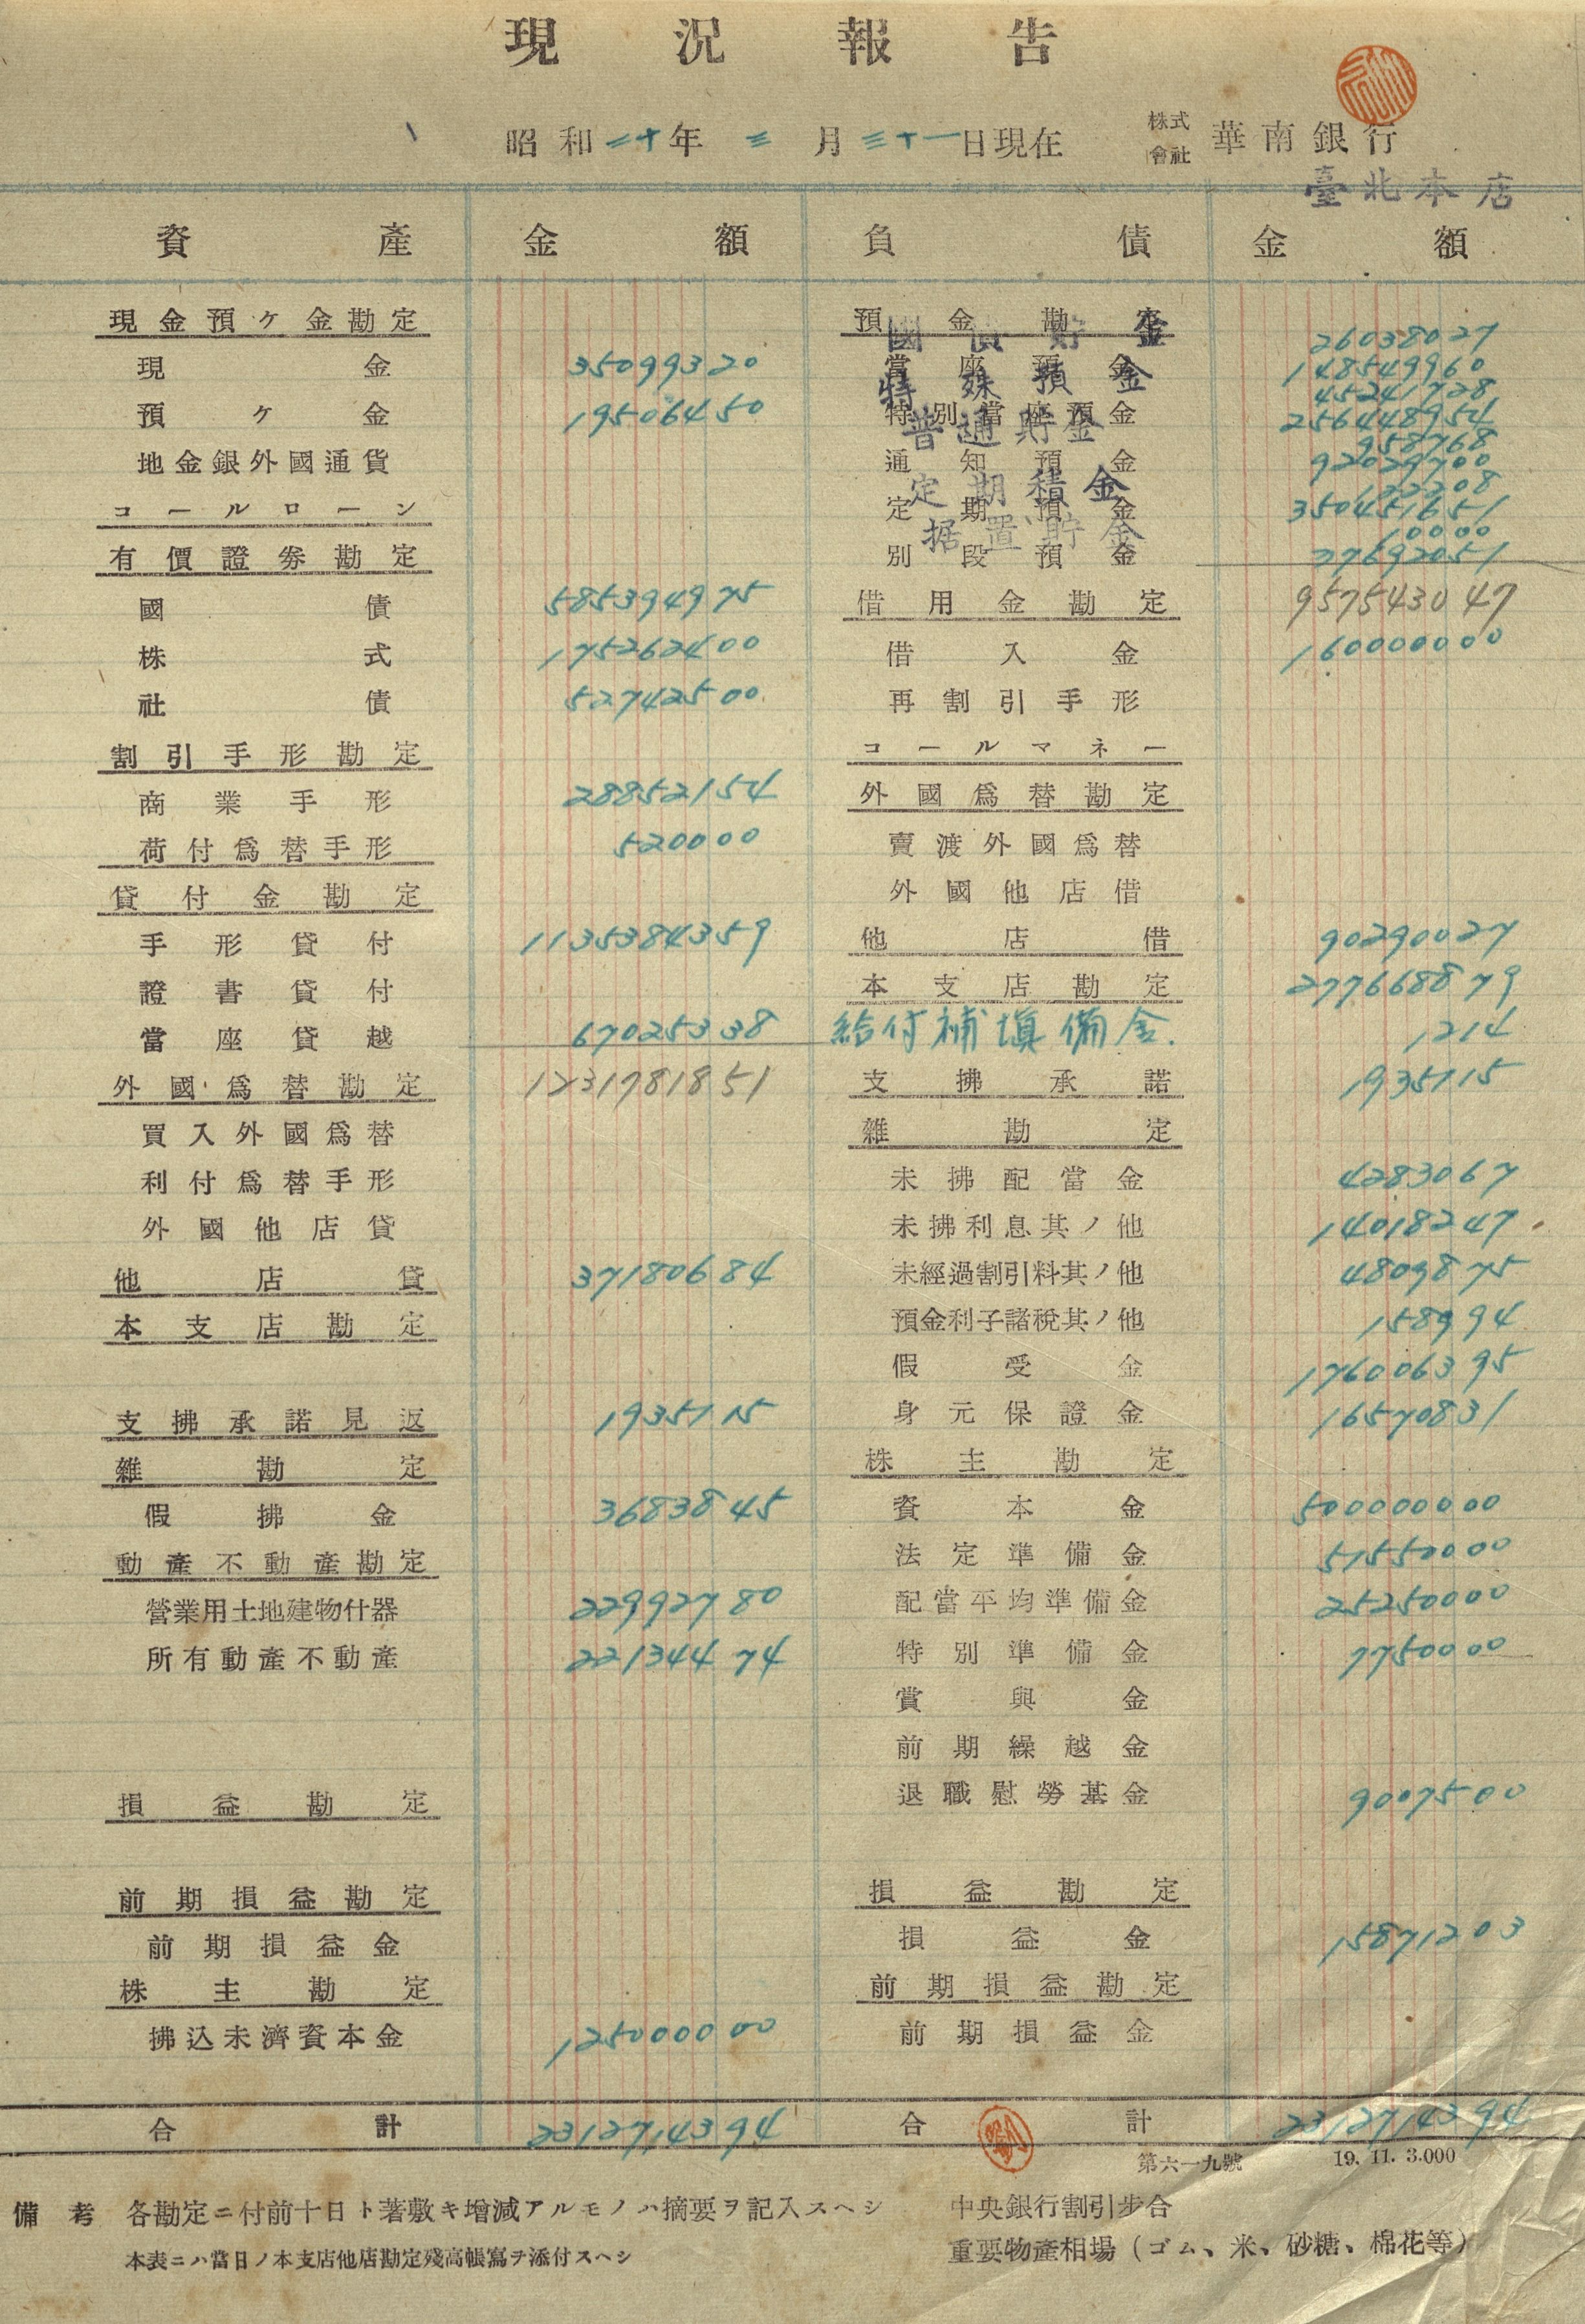 現況報告
昭和二十年三月三十一日現在
株式會社 華南銀行
臺北本店
資產 金額 負債 金額
現金預ケ金勘定
現金 35099320
預ケ金 19506450
地金銀外國通貨
コールローン
有價證券勘定
國債 585394975
株式 175262400
社債 52742500
割引手形勘定
商業手形 28852154
荷付爲替手形 520000
貸付金勘定
手形貸付 1135384359
證書貸付
當座貸越 67025338
外國爲替勘定 1231781851
買入外國爲替
利付爲替手形
外國他店貸
他店貸 37180684
本支店勘定
支拂承諾見返 1935115
雜勘定
假拂金 3683845
動產不動產勘定
營業用土地建物什器 22992780
所有動產不動產 22134474
損益勘定
前期損益勘定
前期損益金
株主勘定
拂込未濟資本金 125000000
合計 2312714394
預金勘定
國債貯金 26038027
當座預金 148549960
特殊預金 45241728
特別當座預金 256448954
普通貯金 958768
通知預金 92029700
定期積金 122208
定期預金 350451651
据置貯金 10000
別段預金 37692051
借用金勘定 957543047
借入金 160000000
再割引手形
コールマネー
外國爲替勘定
賣渡外國爲替
外國他店借
他店借 90290027
本支店勘定 277668879
給付補塡備金. 1214
支拂承諾 1935115
雜勘定
未拂配當金 4283067
未拂利息其ノ他 14018247
未經過割引料其ノ他 4809875
預金利子諸稅其ノ他 158994
假受金 176006395
身元保證金 16570831
株主勘定
資本金 500000000
法定準備金 51550000
配當平均準備金 25250000
特別準備金 7750000
賞與金
前期繰越金
退職慰勞基金 9007500
損益勘定
損益金 15871203
前期損益勘定
前期損益金
合計 2312714394
第六一九號 19. 11. 3.000
備考 各勘定ニ付前十日ト著敷キ增減アルモノハ摘要ヲ記入スヘシ
本表ニハ當日ノ本支店他店勘定殘高帳寫ヲ添付スヘシ
中央銀行割引步合
重要物產相場(ゴム、米、砂糖、棉花等)